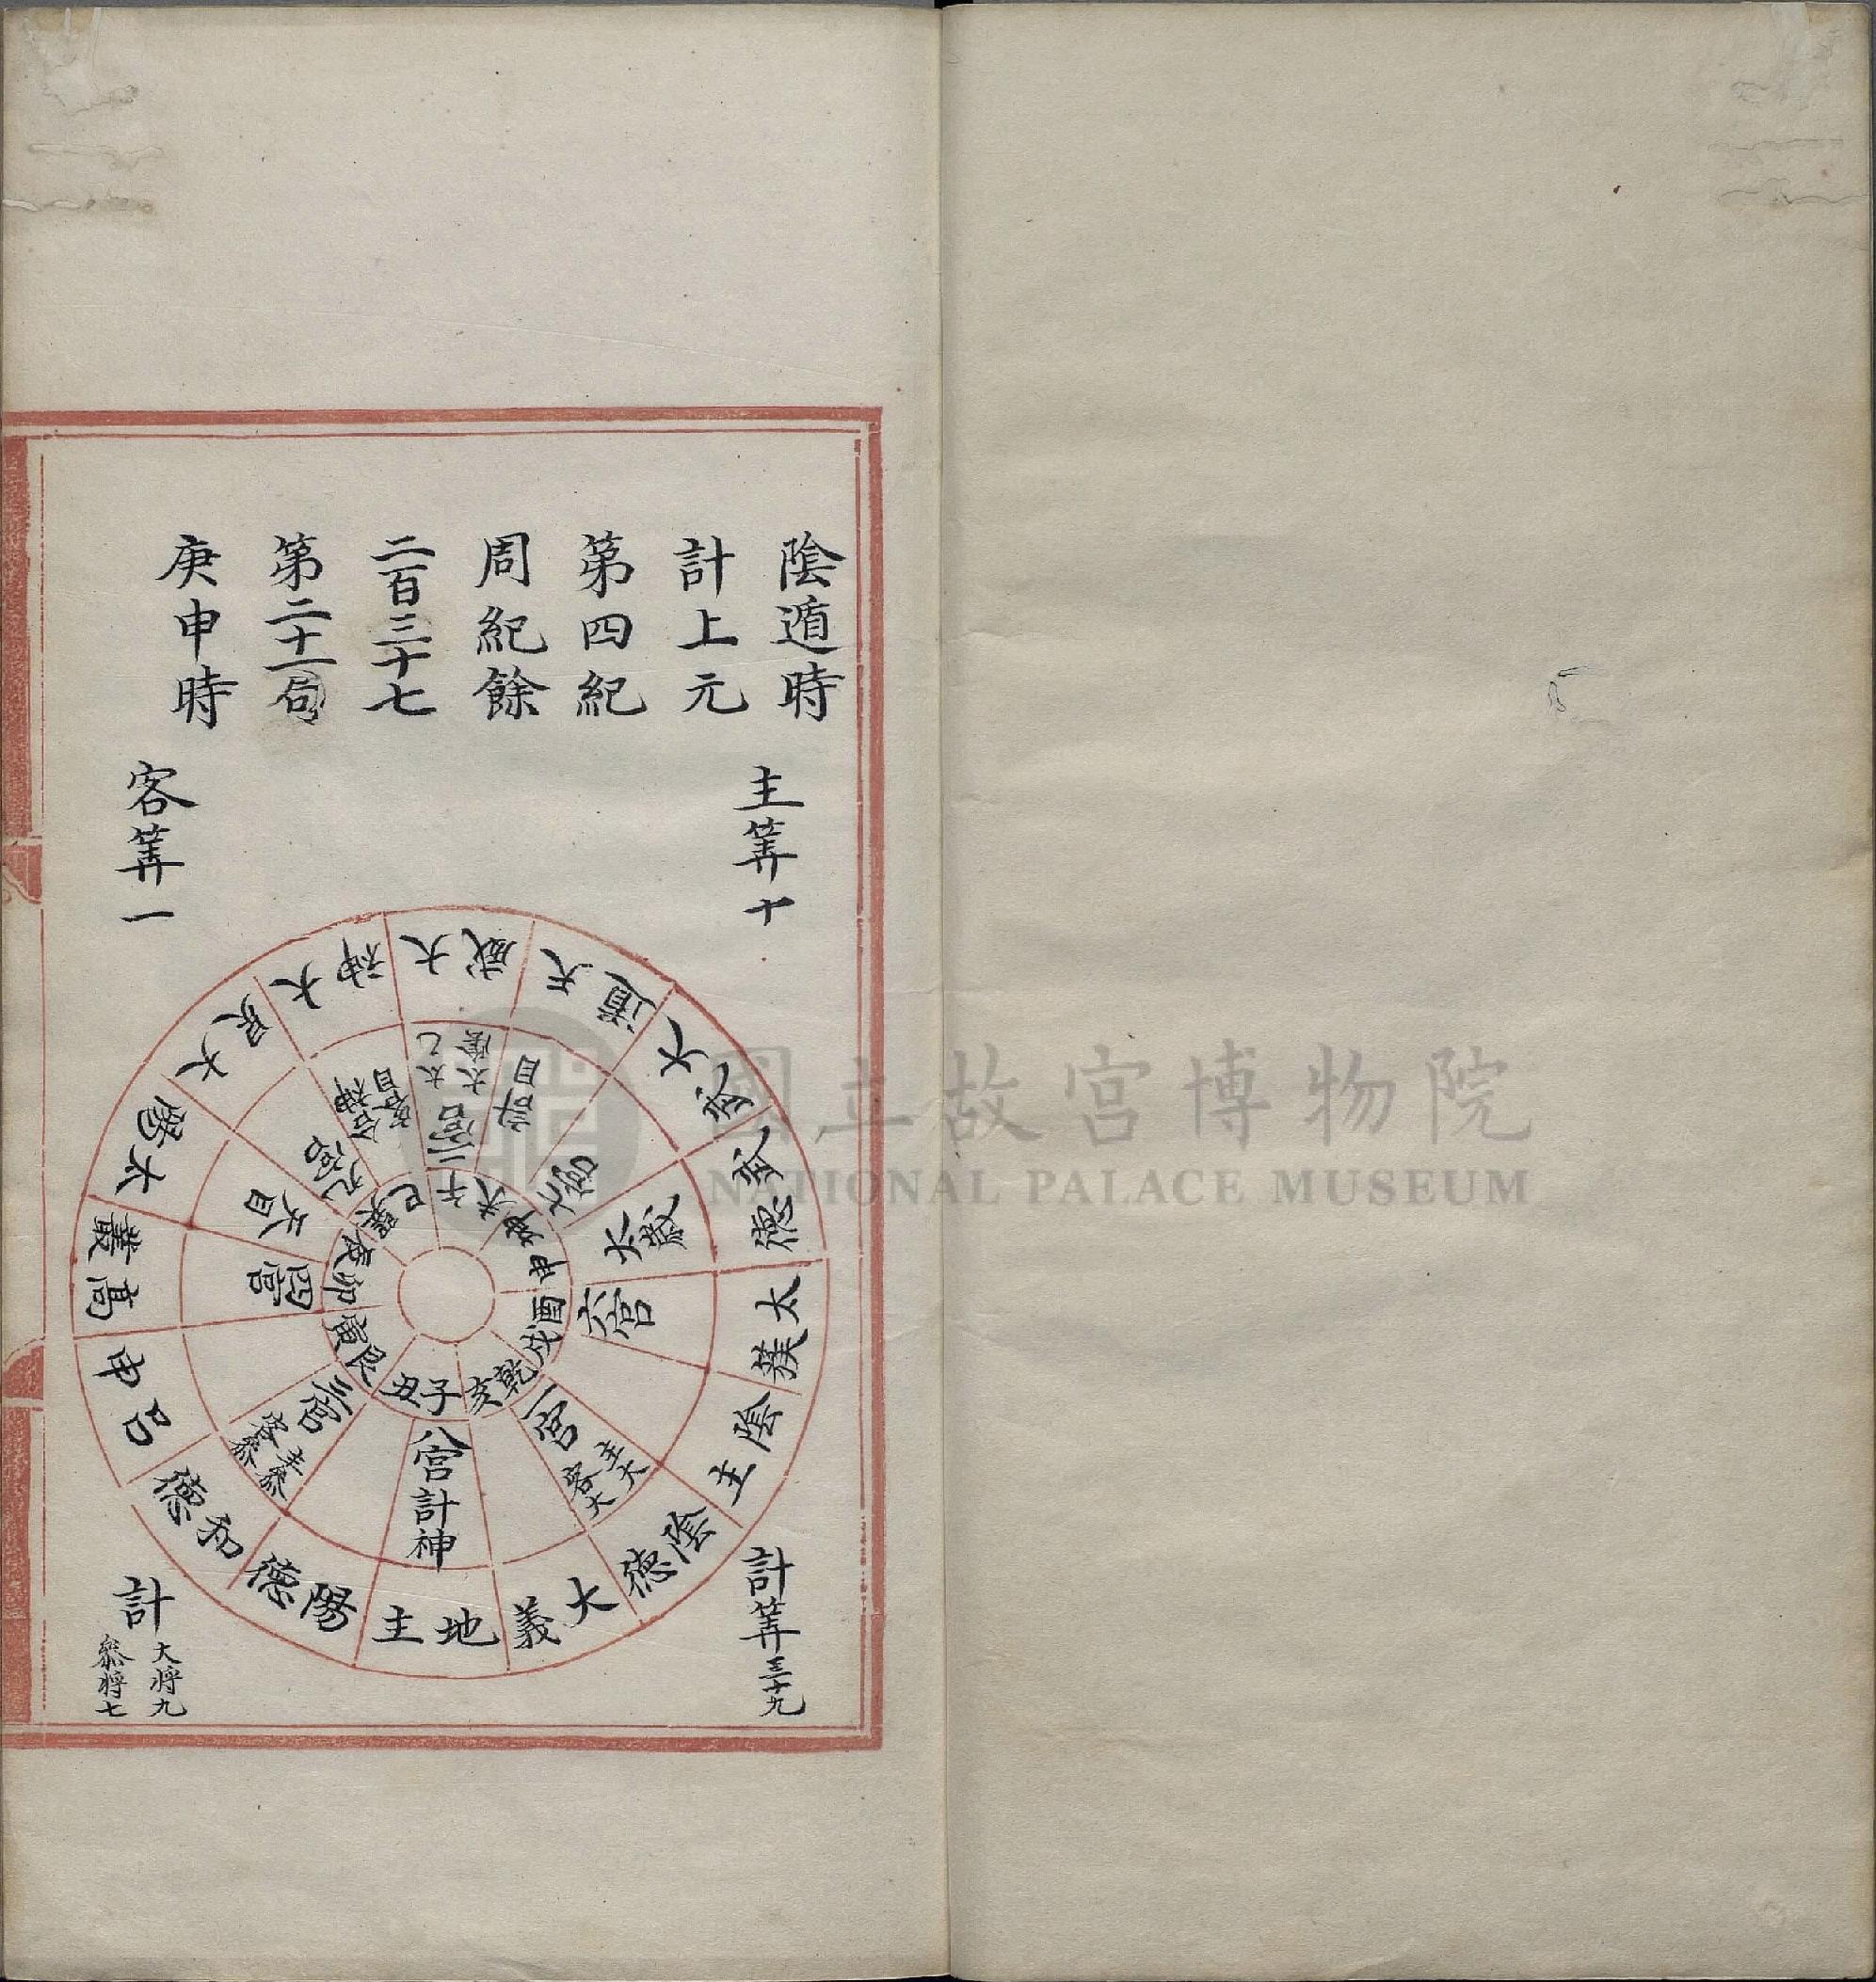 陰遁時
計上元
第四紀
周紀餘
二百三十七
第二十一局
庚申時
主筭十
客筭一
大威
天道
大武
武德
太簇
陰主
陰德
大義
地主
陽德
和德
呂申
高叢
太陽
大炅
大神
二宮
太乙
太陰
計目
七宮
太歲
六宮
一宮
主大
客大
八宮計神
三宮
主參
客參
四宮
天目
九宮
合神
客目
午
未
坤
申
酉
戌
乾
亥
子
丑
艮
寅
卯
辰
巽
巳
計筭三十九
計
大將九
參將七
國立故宮博物院
NATIONAL PALACE MUSEUM